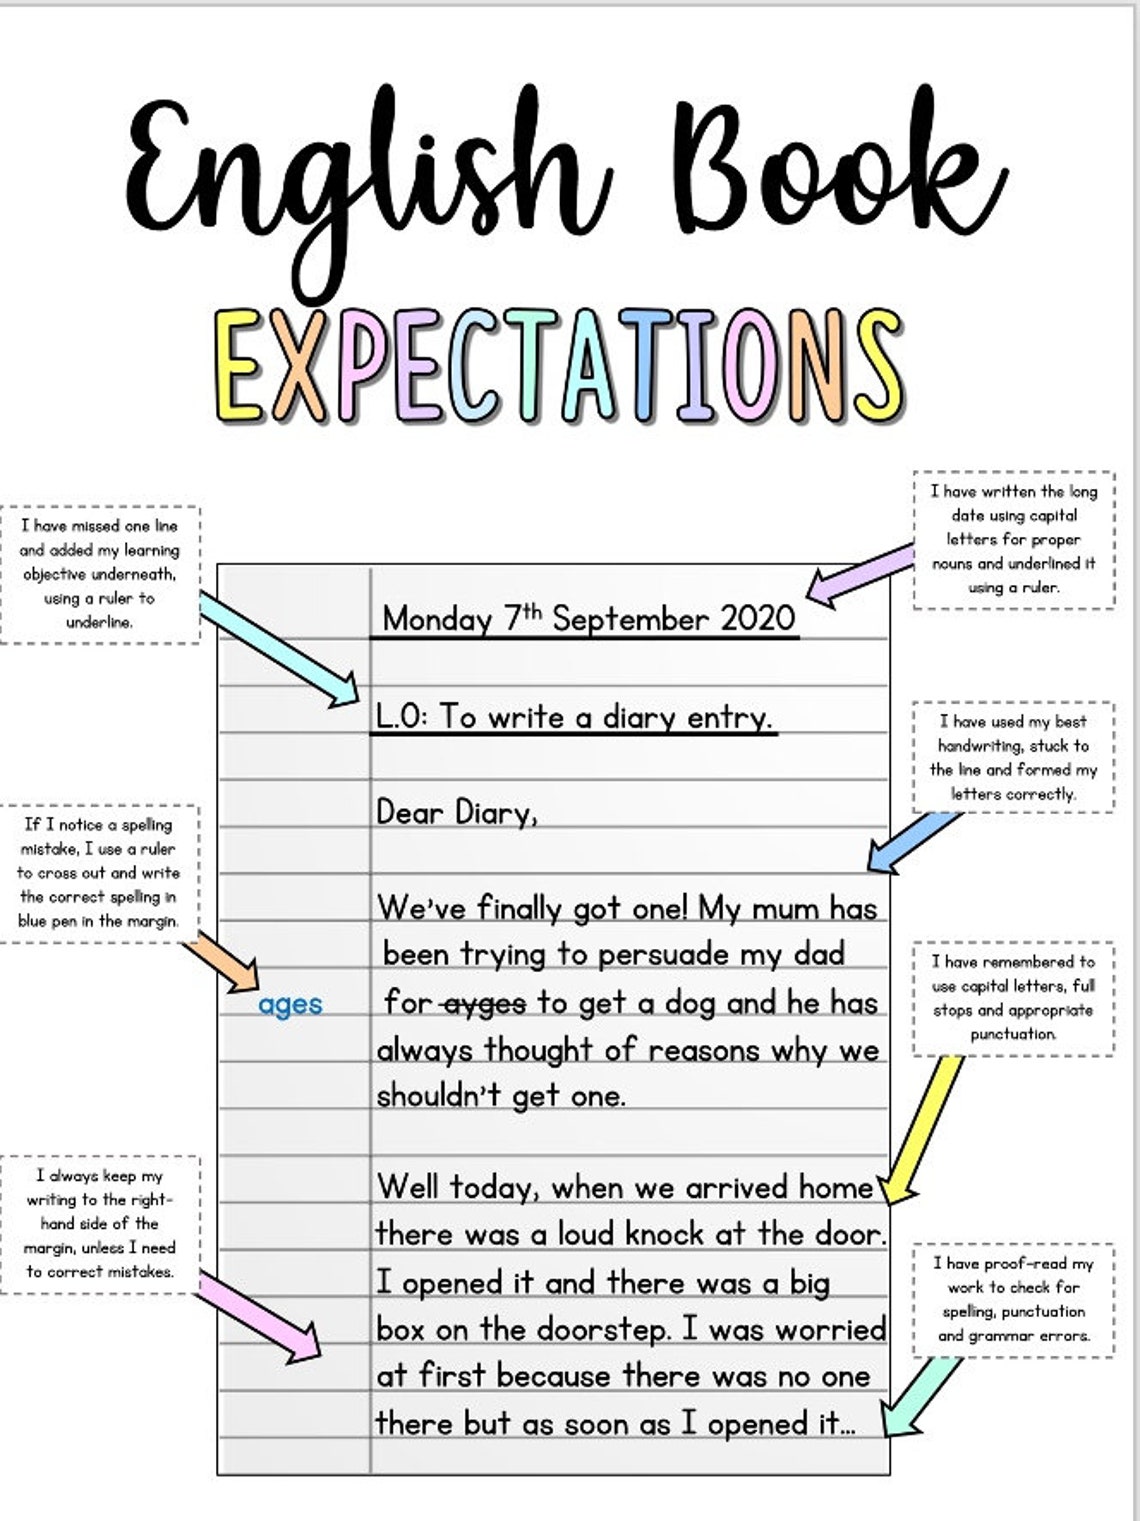 English Book
EXPECTATIONS
I have missed one line
and added my learning
objective underneath,
using a ruler to
underline.
I have written the long
date using capital
letters for proper
nouns and underlined it
using a ruler.
Monday 7th September 2020
L.O: To write a diary entry.
I have used my best
handwriting, stuck to
the line and formed my
letters correctly.
Dear Diary,
If I notice a spelling
mistake, I use a ruler
to cross out and write
the correct spelling in
blue pen in the margin.
We've finally got one! My mum has
been trying to persuade my dad
ages
for ayges to get a dog and he has
always thought of reasons why we
shouldn't get one.
I have remembered to
use capital letters, full
stops and appropriate
punctuation.
I always keep my
writing to the right-
hand side of the
margin, unless I need
to correct mistakes.
Well today, when we arrived home
there was a loud knock at the door.
I opened it and there was a big
box on the doorstep. I was worried
at first because there was no one
there but as soon as I opened it...
I have proof-read my
work to check for
spelling, punctuation
and grammar errors.